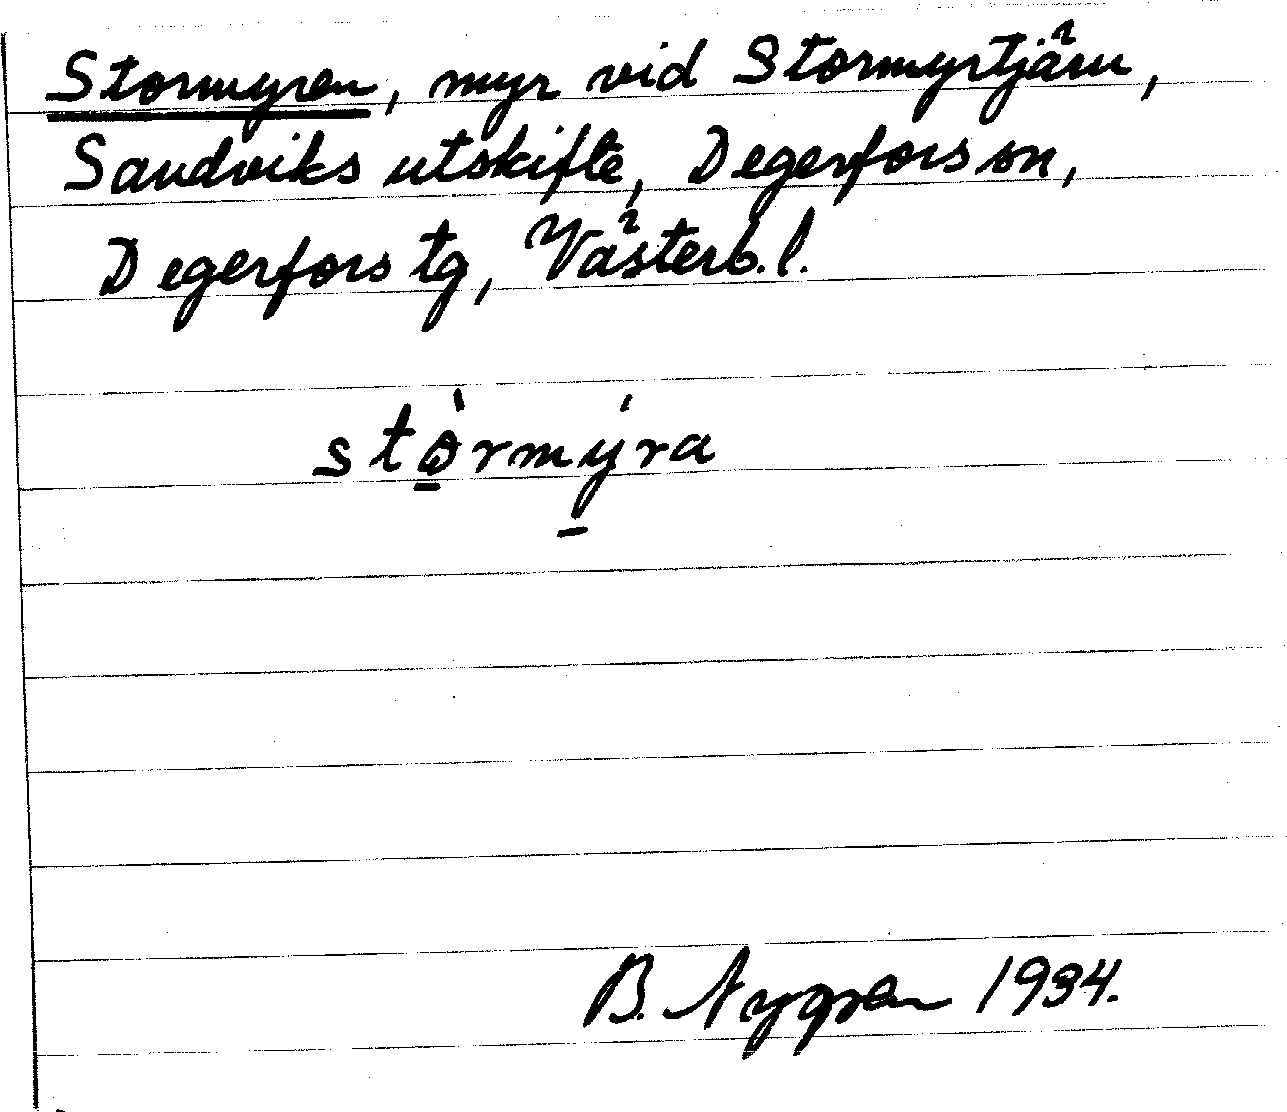 Stormyren, myr vid Stormyrtjärn,
Sandviks utskifte, Degerfors sn,
Degerfors tg, Västerb. l.
stò̱rmý̱ra
B. Nygren 1934.